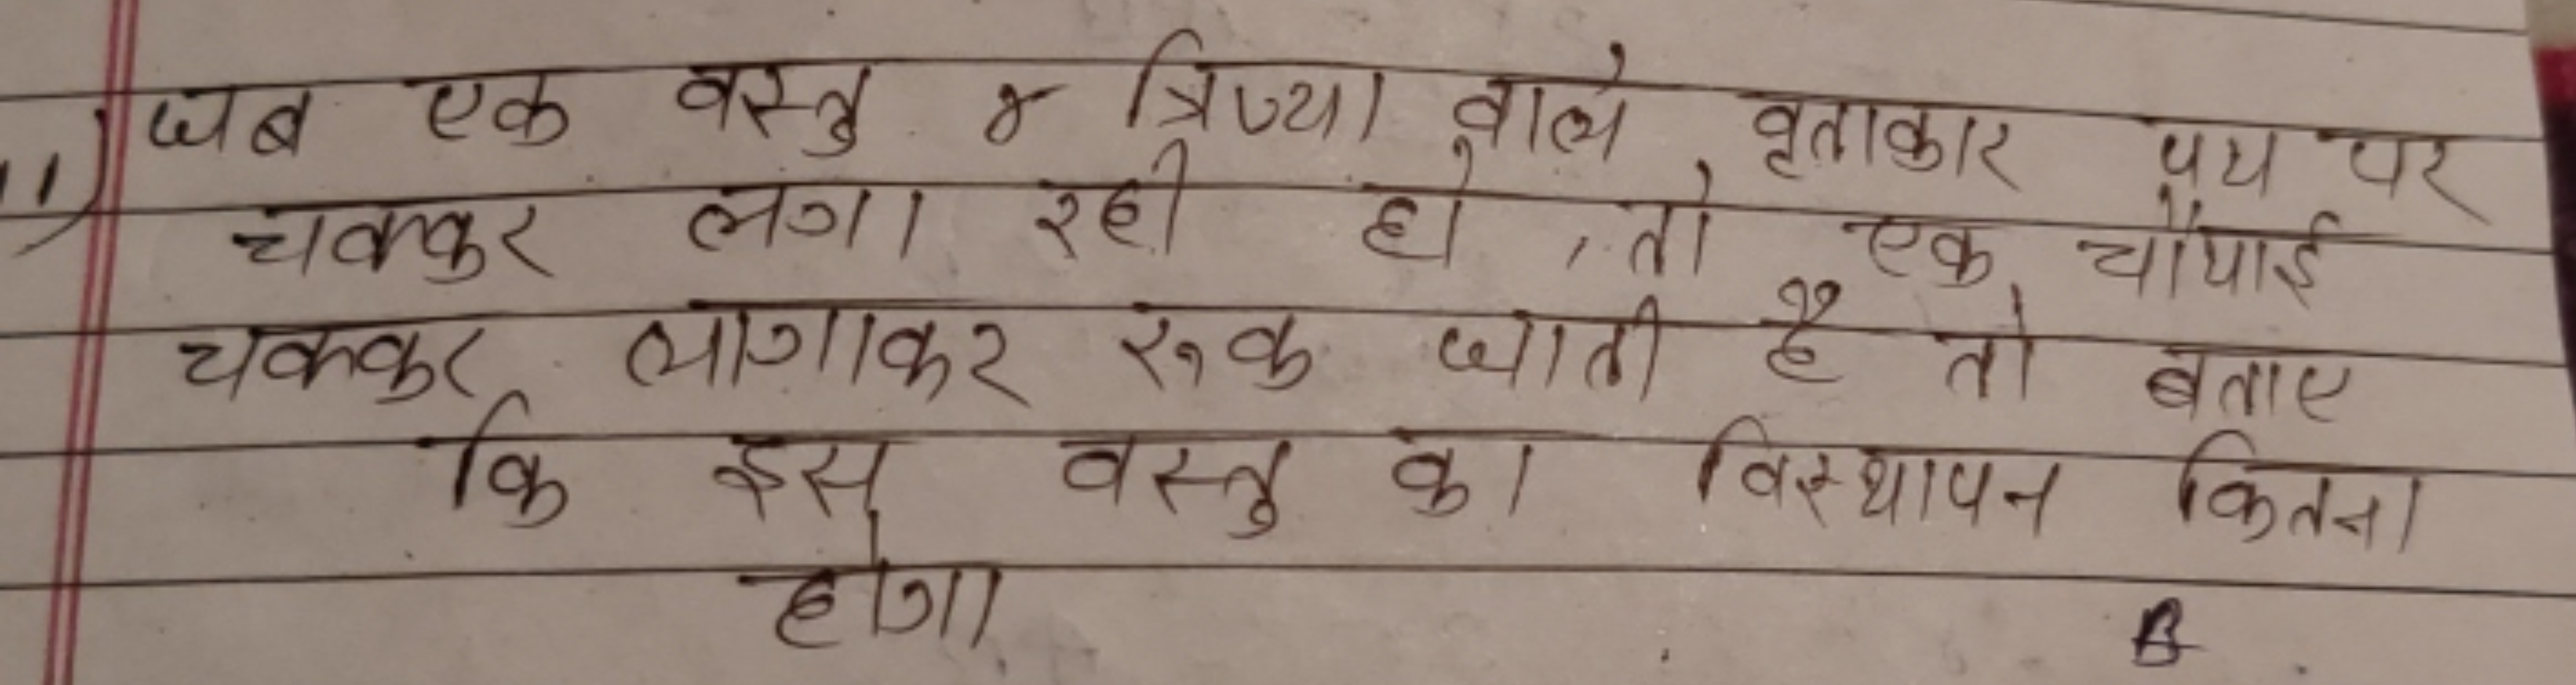 11) जब एक वस्तु r त्रिज्या वाले वृताकार पथ पर
चक्कर लगा रही हो, तो एक चौथाई
चक्कर लागाकर रूक जाती है तो बताए
कि इस वस्तु का विस्थापन कितना
होगा
B